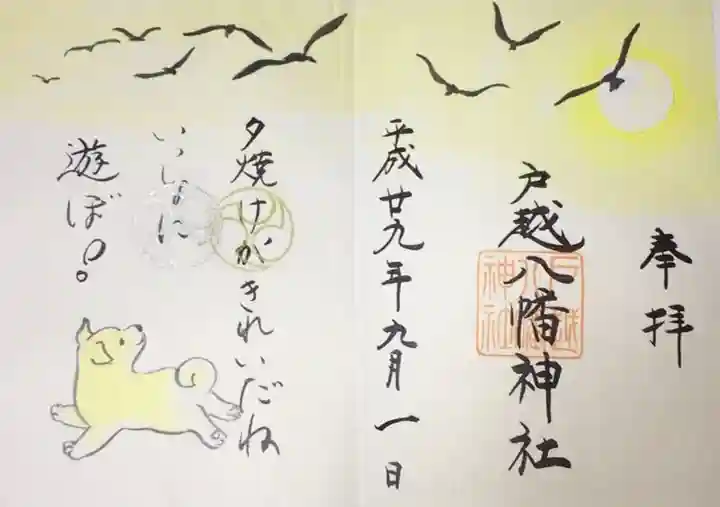 奉拝
戸越八幡神社
平成廿九年九月一日
夕焼けがきれいだね
いっしょに
遊ぼ!